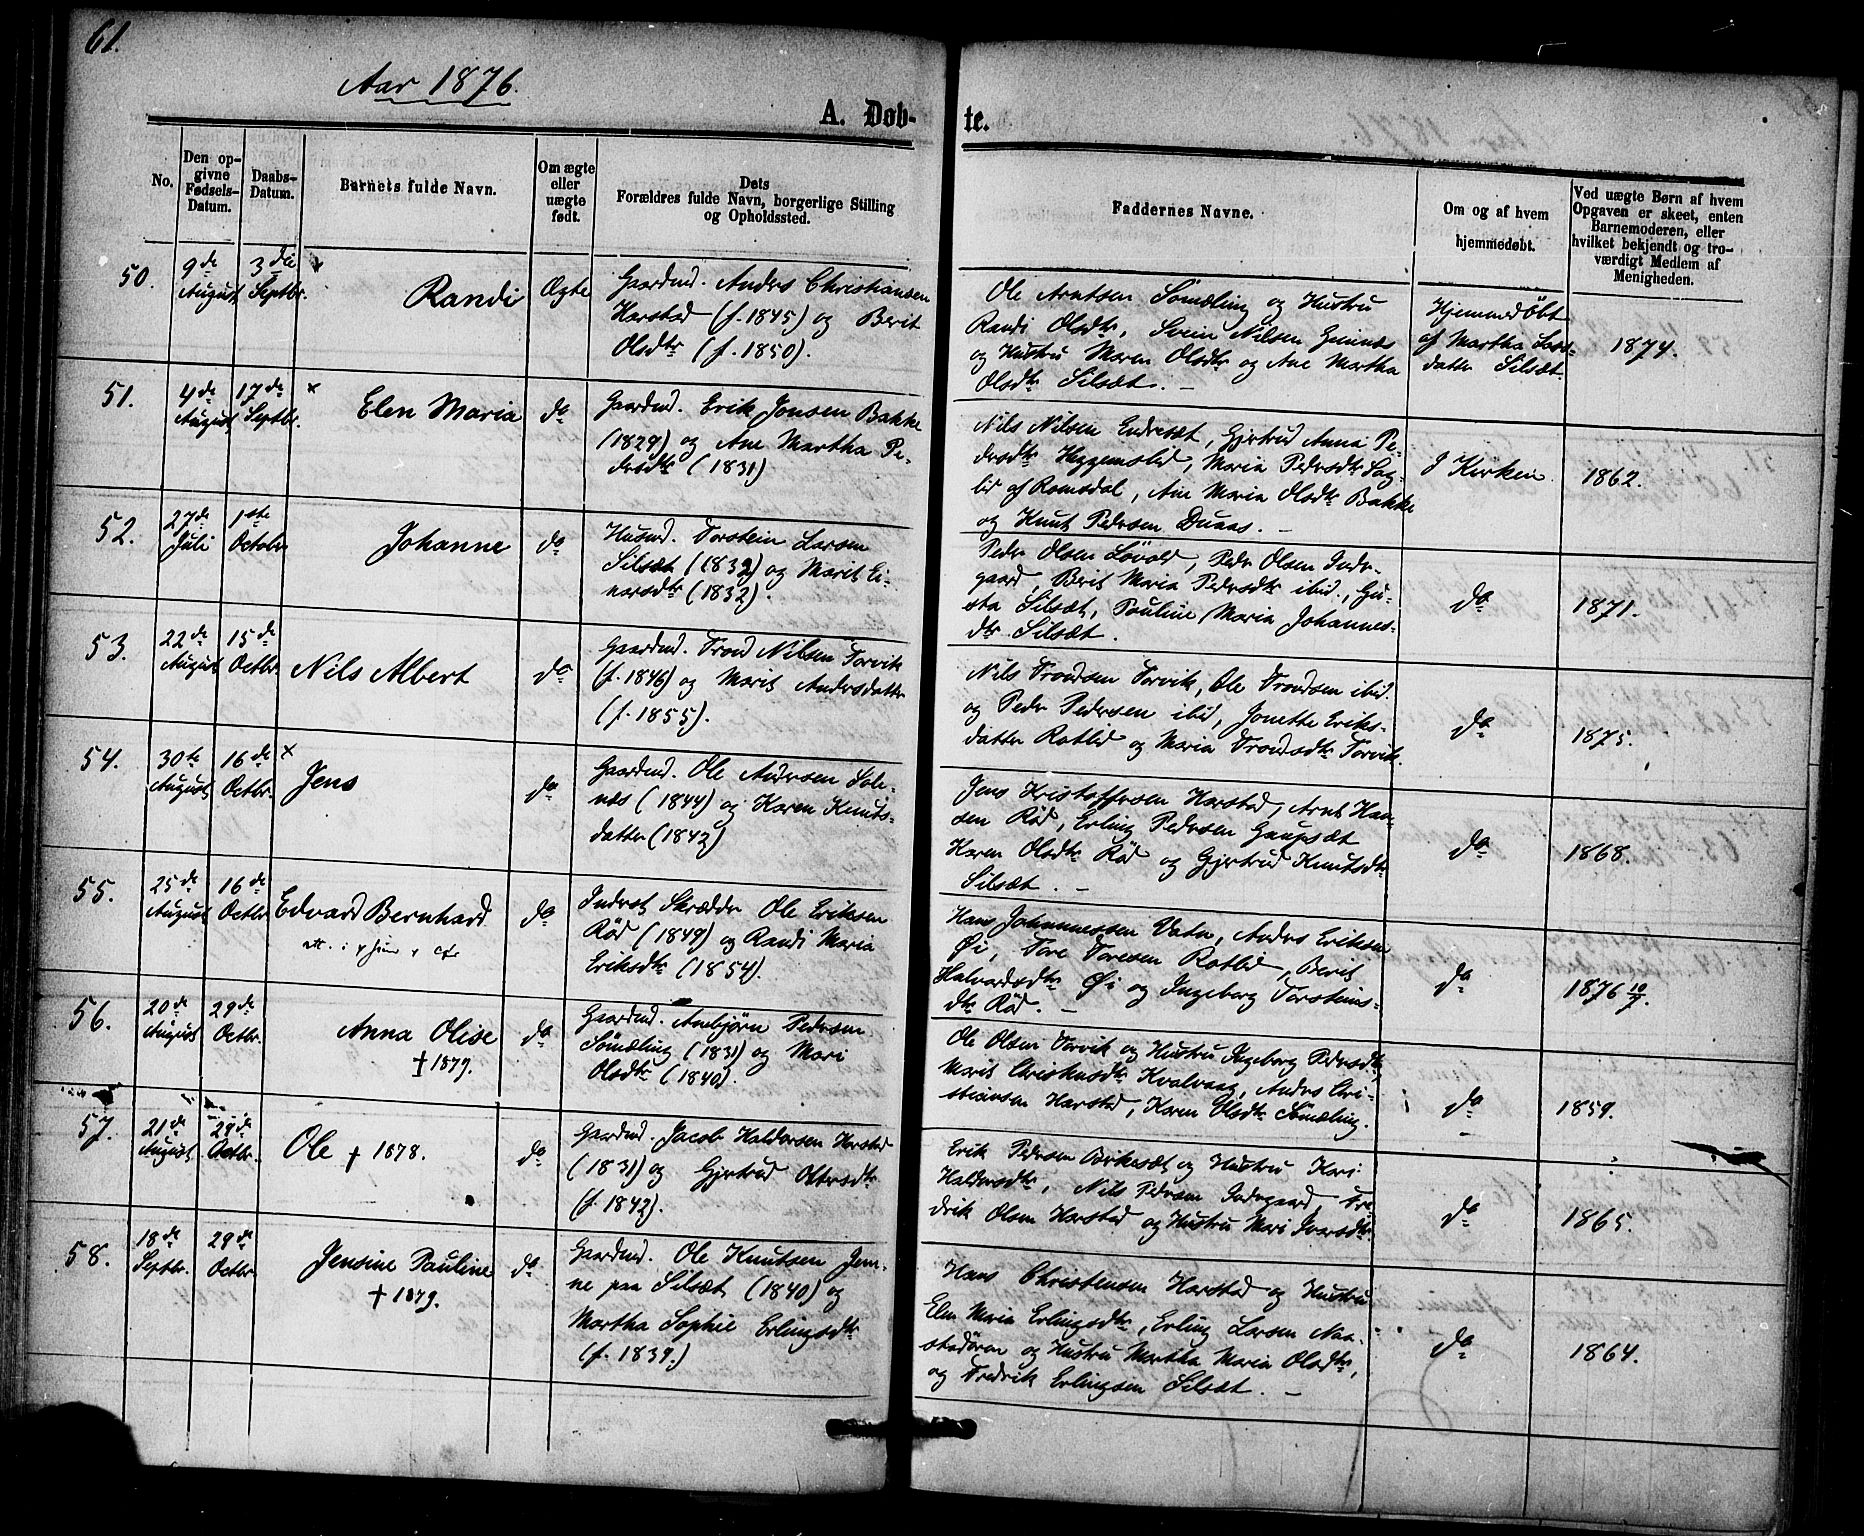 61.
Aar 1876.
A. Døb-
te.
No.
Den op-
givne
Fødsels-
Datum.
Daabs-
Datum.
Barnets fulde Navn.
Om ægte
eller
uægte
født.
Dets
Forældres fulde Navn, borgerlige Stilling
og Opholdssted.
Faddernes Navne.
Om og af hvem
hjemmedøbt.
Ved uægte Børn af hvem
Opgaven er skeet, enten
Barnemoderen, eller
hvilket bekjendt og tro-
værdigt Medlem af
Menigheden.
50.
9de
August
3die
Septbr.
Randi
Ægte
Gaardmd. Anders Christiansen
Harstad (f. 1845) og Berit
Olsdtr (f. 1850).
Ole Arntsen Sømæling og Hustru
Randi Olsdtr, Svein Nilsen
og Hustru Maren Olsdtr og Ane Martha
Olsdtr Silsæt. -
Hjemmedøbt
af Martha Lars-
datter Silsæt
1874.
51.
4de
August
17de
Septbr.
x
Elen Maria
do
Gaardmd. Erik Jonsen Bakke
(1829) og Ane Martha Pe-
dersdtr (1831)
Nils Nilsen Endresæt, Gjertrud Anna Pe-
dersdtr Heggemslid, Maria Pedersdtr
af Romsdal, Ane Maria Olsdtr Bakke
og Knut Pedersen Duaas. -
I Kirken
1862.
52.
27de
Juli
1ste
Octobr
Johanne
do
Husmd. Torstein Larsen
Silsæt (1832) og Marit Ei-
narsdtr (1832).
Peder Olsen Løvold, Peder Olsen Inder-
gaard, Berit Maria Pedersdtr ibid., Gu-
sta Silsæt, Pauline Maria Johannes-
dtr Silsæt.
do
1871.
53.
22de
August
15de
Octbr.
Nils Albert
do
Gaardmd. Trond Nilsen Torvik
(f. 1846) og Marit Andersdatter
(f. 1855).
Nils Trondsen Torvik, Ole Trondsen ibid.
og Peder Pedersen ibid, Jonette Eriks-
datter Rotlid og Maria Trondsdtr Torvik.
do
1875.
54.
30te
August
16de
Octbr.
x
Jens
do
Gaardmd. Ole Andersen Sole-
næs (1844) og Karen Knuts-
datter (1842)
Jens Kristoffersen Harstad, Arnt Han-
sen Rød, Erling Pedersen Gaupsæt
Karen Olsdtr Rød og Gjertrud Knutsdtr
Silsæt. -
do
1868.
55.
25de
August
16de
Octbr.
Edvard Bernhard
do
Inderst Skrædder Ole Eriksen
Rød (1849) og Randi Maria
Eriksdtr (1854).
Hans Johannessen Vatn, Anders Eriksen
Øi, Tore Toresen Rotlid, Berit
Halvardsdtr Øi og Ingeborg Torsteins-
dtr Rød. -
do
1876 10/7.
56.
20de
August
29de
Octbr.
Anna Olise
† 1879.
do
Gaardmd. Arnbjørn Pedersen
Sømæling (1831) og Mari
Olsdtr (1840).
Ole Olsen Torvik og Hustru Ingeborg Pedersdtr,
Marit Christensdtr Kvalvaag, Anders Chri-
stiansen Harstad, Karen Olsdtr Sømæling.
do
1859.
57.
21de
August
29de
Octbr.
Ole † 1878.
do
Gaardmd. Jacob Haldorsen Harstad
(1831) og Gjertrud Ottersdtr
(f. 1842).
Erik Pedersen Birkesæt og Hustru Kari
Haldorsdtr, Nils Pedersen Indergaard, Fre-
drik Olsen Harstad og Hustru Mari Ivarsdtr.
do
1865.
58.
18de
Septbr.
29de
Octbr.
Jensine Pauline
† 1879.
do
Gaardmd. Ole Knutsen Jem-
ne paa Silsæt (1840) og
Martha Sophie Erlingsdtr
(f. 1839.)
Hans Christensen Harstad og Hustru
Elen Maria Erlingsdtr, Erling Larsen Naa-
stadøren og Hustru Martha Maria Olsdtr,
og Fredrik Erlingsen Silsæt. -
do
1864.